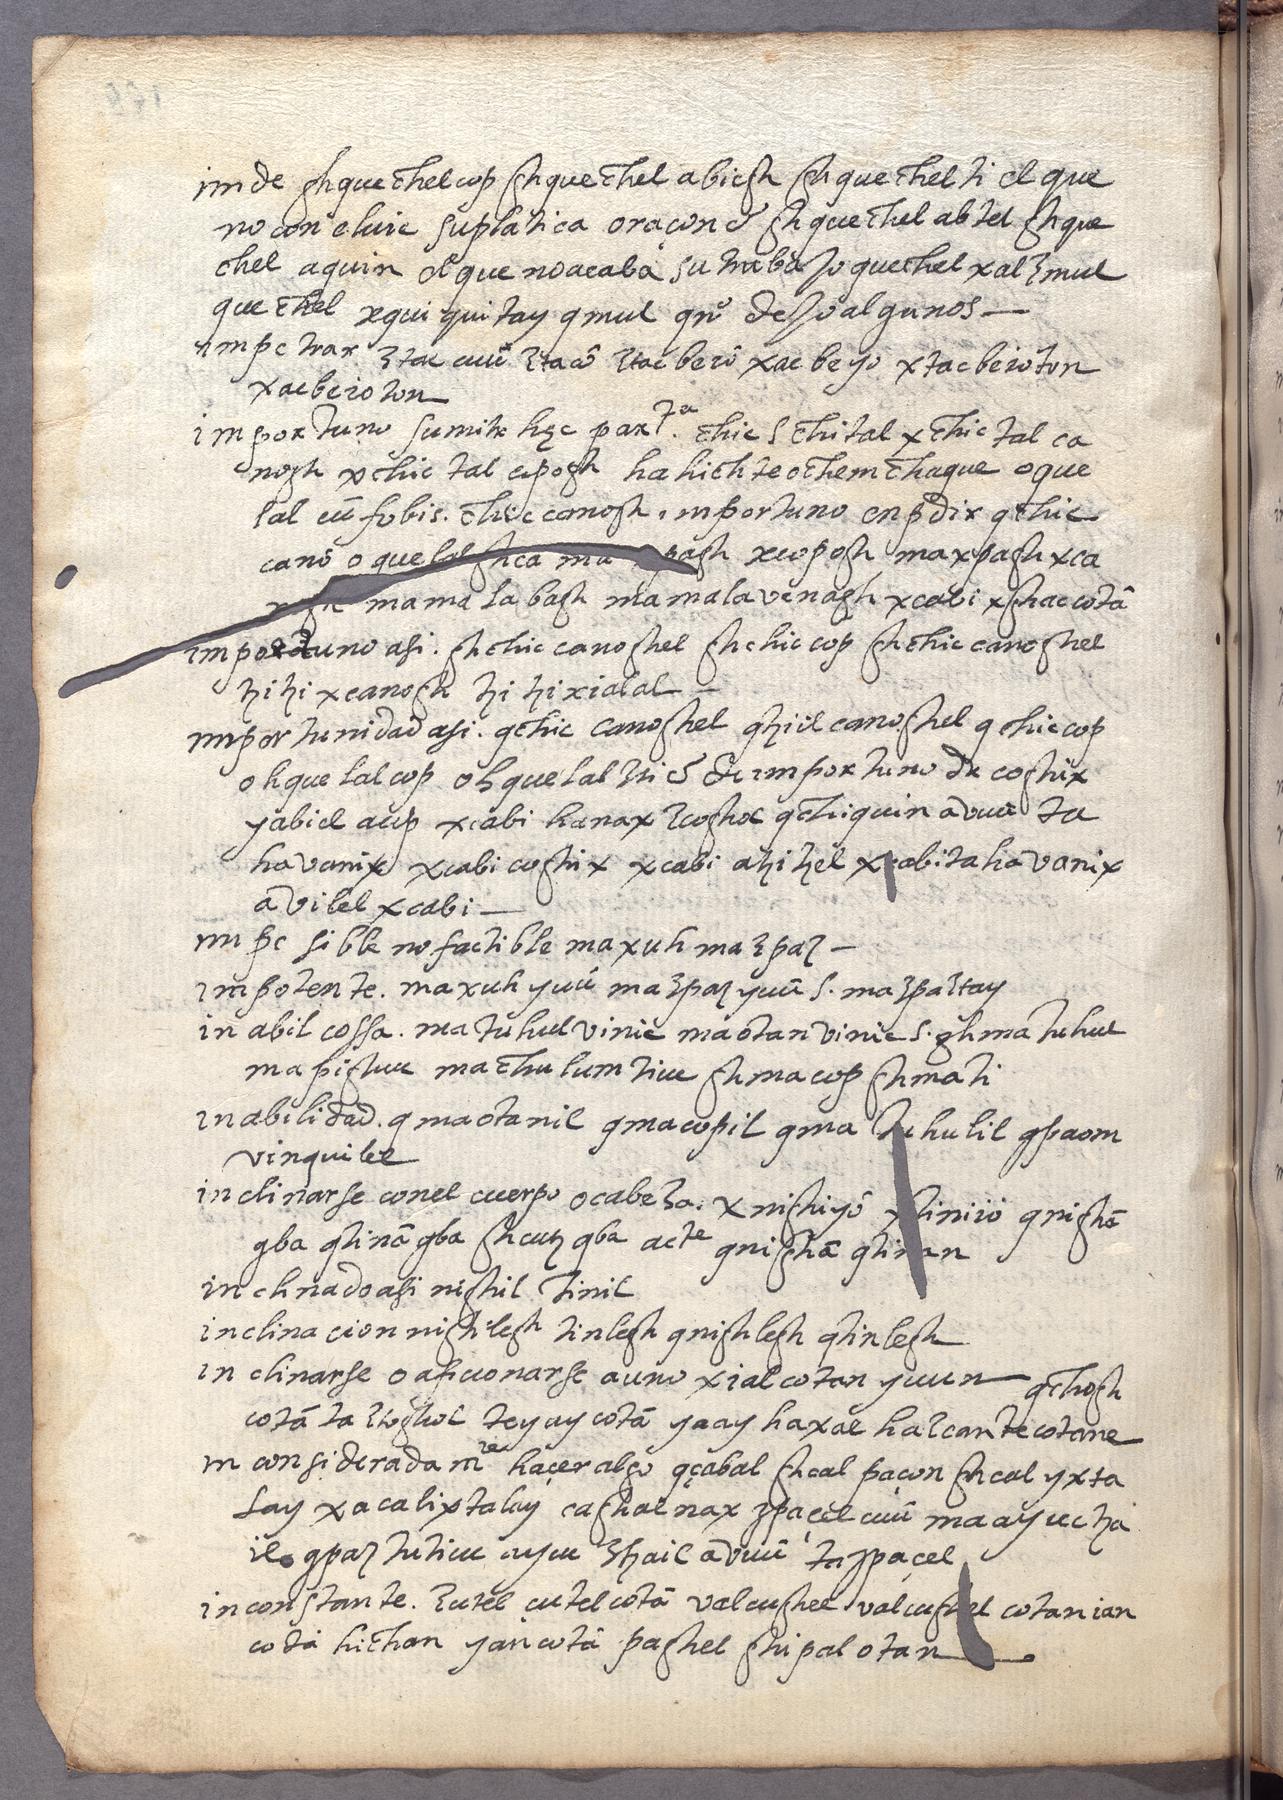 im de ghquechelcop ghquechel abiegh ghquechelti el que
no concluie suplatica oraçon & ghquechel abtel ghque
chel aquin el que no acaba su trabajo quechel xalꜫmul
quechel xquiquitay qmul qnº dejo algunos —
impetrar ꜫtac cuū ꜫtacō ꜫtacbeiō xacbeyo xtacbeioton
xacbeioton —
importuno sumitr hęc partª. chic s chital xchictal ca
nogh xchictal copogh hahichteochemchaque oque
lal cū fobis. chiccanogh. importuno enpdir qchic
canō oquelal ghca ma xpagh xcopogh maxpagh xca
nogh mamalabagh mamalavinagh xcabi xghaccotā
importuno asi. ghchiccanoghel ghchiccop ghchiccanoghel
tzitzixcanogh tzitzixialal —
importunidad asi. qchic canoghel qtziilcanoghel qchiccop
ohquelalcop ohquelalꜫti & de importuno dr coghix
yabiel acop xcabi hanax ꜫcoghol qchiquin avuū ta
havanix xcabi coghix xcabi atzitzel xcabitahavanix
avilel xcabi —
impe sible no factible maxuh maꜫpaꜫ —
impotente. maxuh yuū maꜫpaꜫyuū s. maꜫpaꜫtay
in abil cossa. matuhulvinic maotanvinic s. ghmatuhul
mapighuc machulumticuc ghmacop ghmati
inabilidad. qmaotanil qmacopil qma tuhulil qpaom
vinquilel
inclinarse conel cuerpo ocabeza. xnighiyō xtiniiō qnighā
qba qtinā qba ghcutz qba acte qnighā qtinan
inclinadoasi nighil tinil
inclinacion nighlegh tinlegh qnighlegh qtinlegh
inclinarse oaficionarse auno xialcotan yuun — qchogh
cotā ta ꜫcoghol teyaycotā yaay haxac halcantecotane
inconsideradamte haçeralgo qçabal ghcal paçon ghcal yxta
lay xacalixtalay caghalnax ꜫpaçel cuū maayuctza
il qpaꜫ tuticuc ayuc ꜫtzail avuū taꜫpaçel
inconstante. ꜫutel cutelcotā valcughel valcughel cotanian
cotā hichan yancotā paghel ghipalotan —